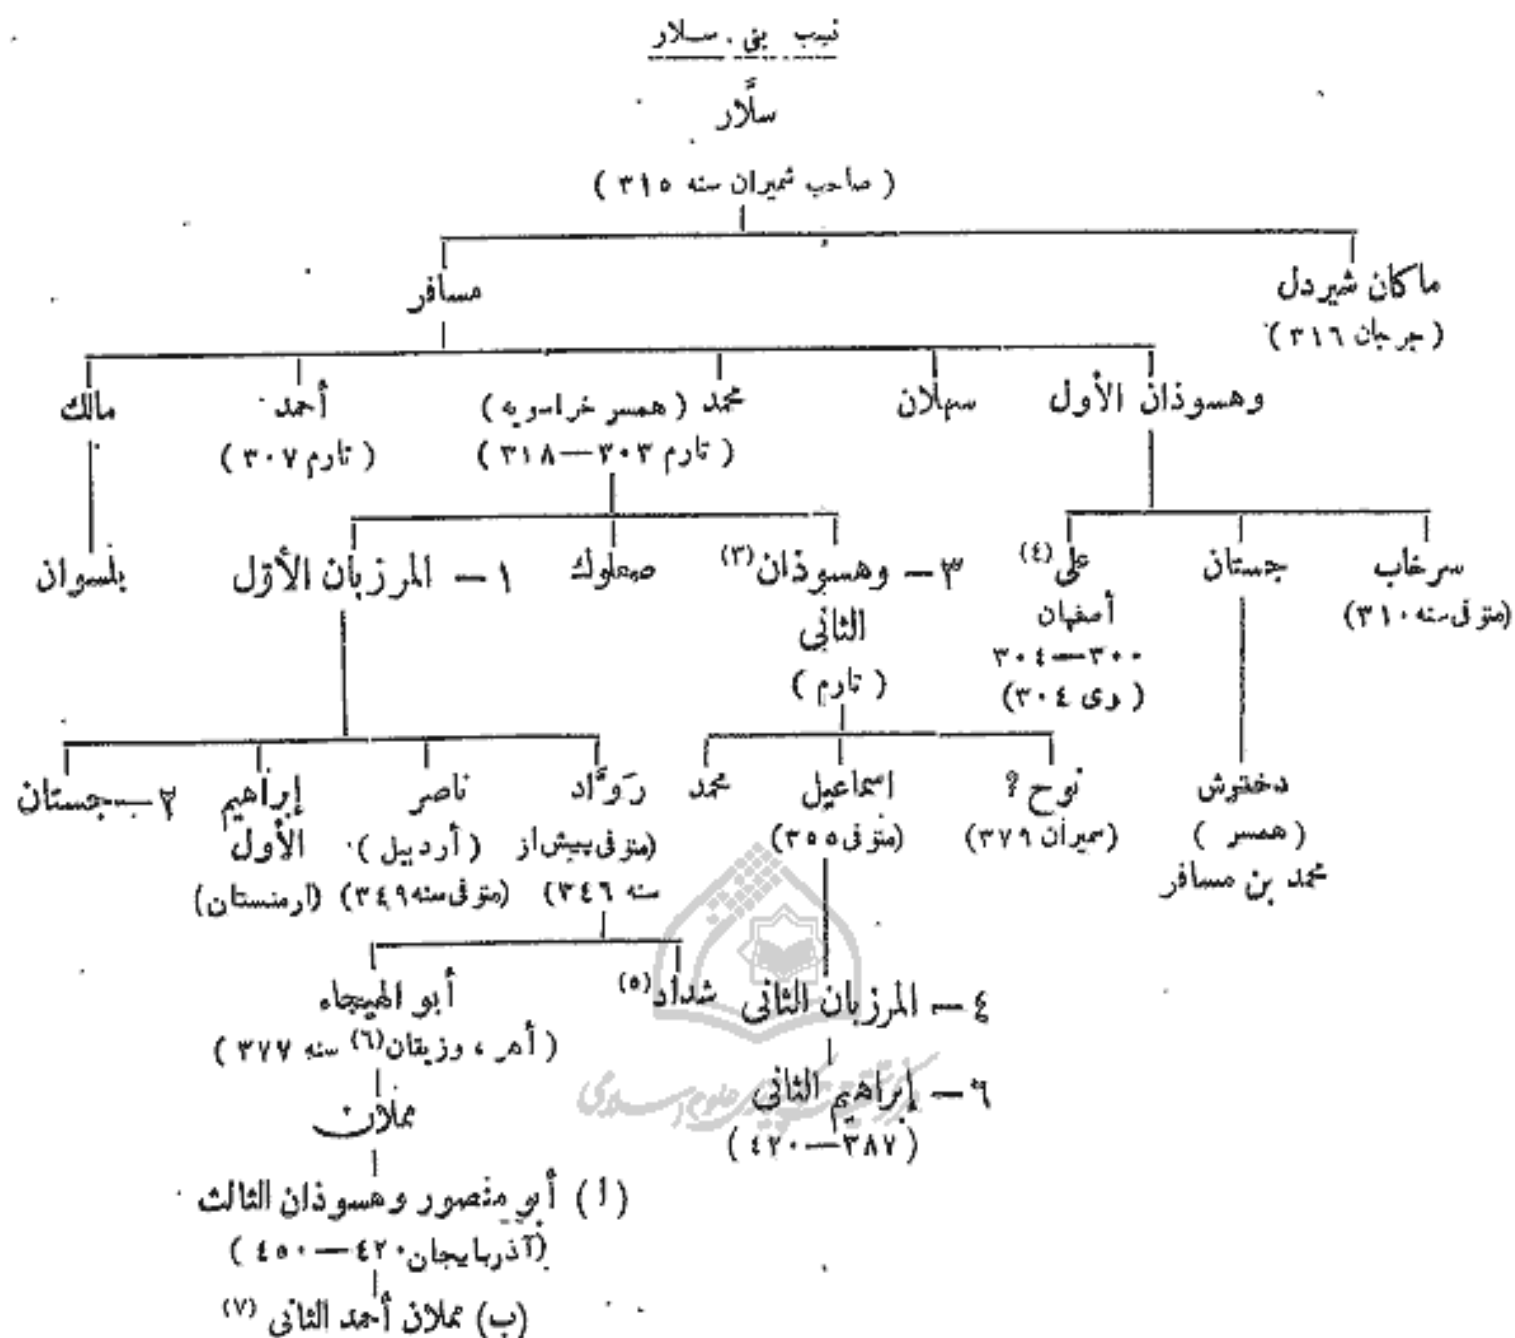 نسب بنى سلار
سلَّار
(صاحب شميران سنه ٣١٥)
ماكان شيردل
(جرجان ٣١٦)
مسافر
وهسوذان الأول
سهلان
محمد (همسر خراسويه)
(تارم ٣٠٣—٣١٨)
أحمد
(تارم ٣٠٧)
مالك
سرخاب
(متوفى سنه ٣١٠)
جستان
على (٤)
أصفهان
٣٠٠—٣٠٤
(رى ٣٠٤)
٣— وهسوذان (٣)
الثانى
(تارم)
صعلوك
١— المرزبان الأوّل
بلسوان
دختوش
(همسر)
محمد بن مسافر
نوح ؟
(سميران ٣٧٩)
اسماعيل
(متوفى ٣٥٥)
محمد
رَوَّاد
(متوفى پيش از
سنه ٣٤٦)
ناصر
(أردبيل)
(متوفى سنه ٣٤٩)
إبراهيم
الأول
(ارمنستان)
٢—جستان
شداد (٥)
أبو الهيجاء
(أهر، وزيقان (٦) سنه ٣٧٧)
٤— المرزبان الثانى
٦— إبراهيم الثانى
(٣٨٧—٤٢٠)
مملان
(ا) أبو منصور وهسوذان الثالث
(آذربايجان ٤٢٠—٤٥٠)
(ب) مملان أحمد الثانى (٧)
مركز تحقيقات كامپيوترى علوم اسلامى